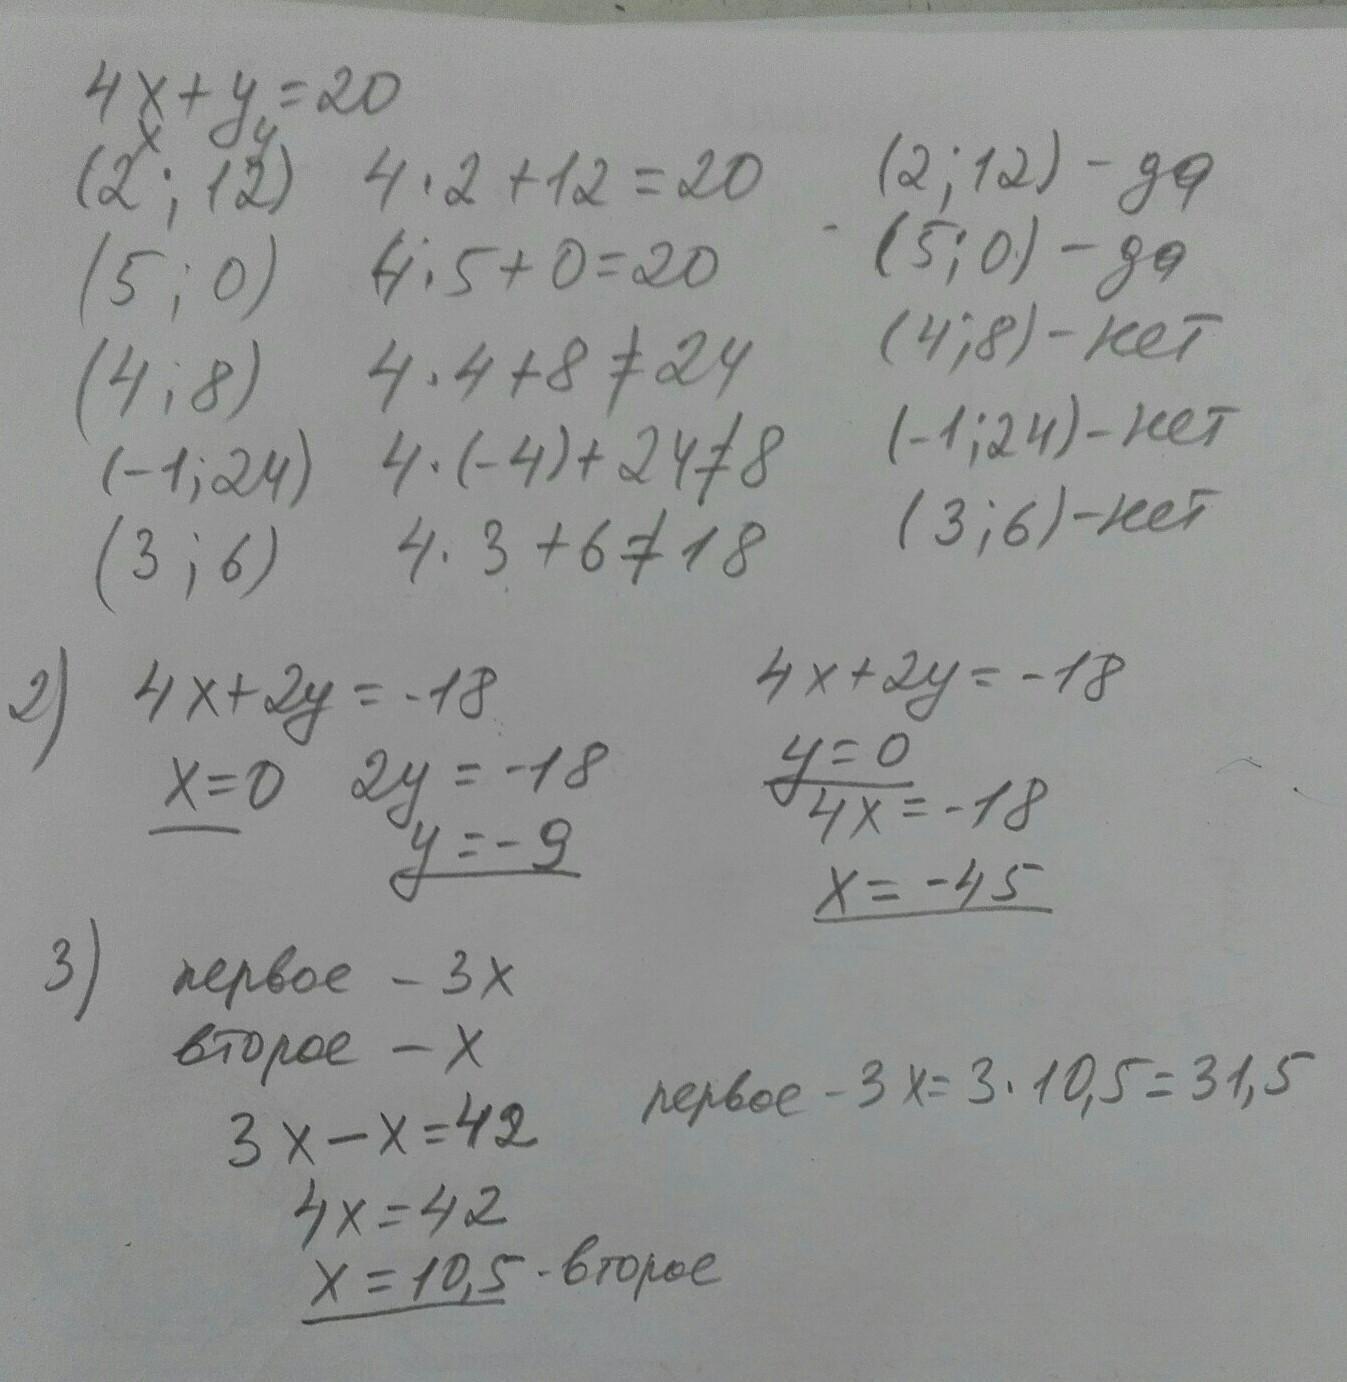 4x+y=20
x y
(2; 12) 4·2+12=20 (2;12) - да
(5; 0) 4·5+0=20 (5;0) - да
(4;8) 4·4+8≠24 (4;8) - нет
(-1;24) 4·(-4)+24≠8 (-1;24) - нет
(3;6) 4·3+6≠18 (3;6) - нет
2) 4x+2y=-18 4x+2y=-18
x=0 2y=-18 y=0
y=-9 4x=-18
x=-45
3) первое - 3x
второе - x
первое - 3x=3·10,5=31,5
3x-x=42
4x=42
x=10,5 - второе